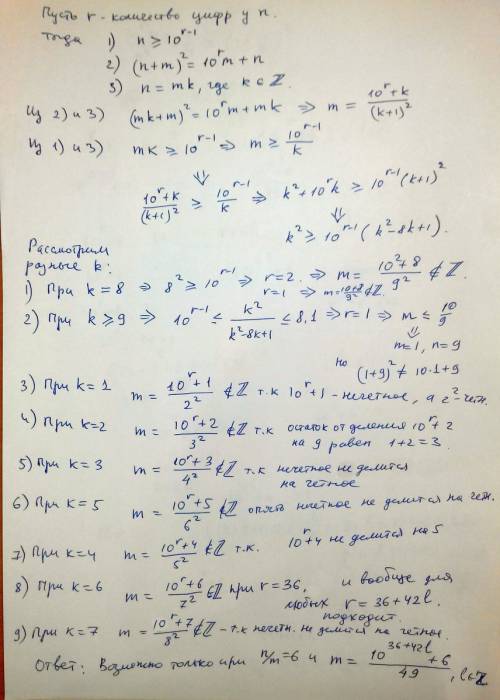 Пусть r - количество цифр у n.
тогда 1) n ≥ 10^{r-1}
2) (n+m)^2 = 10^r m + n
3) n = mk, где k ∈ ℤ.
Из 2) и 3) (mk+m)^2 = 10^r m + mk ⇒ m = (10^r+k)/(k+1)^2
Из 1) и 3) mk ≥ 10^{r-1} ⇒ m ≥ 10^{r-1}/k
⇓
(10^r+k)/(k+1)^2 ≥ 10^{r-1}/k ⇒ k^2+10^r k ≥ 10^{r-1}(k+1)^2
⇓
k^2 ≥ 10^{r-1}(k^2-8k+1).
Рассмотрим
разные k:
1) При k=8 ⇒ 8^2 ≥ 10^{r-1} ⇒ r=2. ⇒ m = (10^2+8)/9^2 ∉ ℤ.
r=1 ⇒ m = (10+8)/9^2 ∉ ℤ.
2) При k ≥ 9 ⇒ 10^{r-1} ≤ k^2/(k^2-8k+1) ≤ 8,1 ⇒ r=1 ⇒ m ≤ 10/9
⇓
m=1, n=9
но (1+9)^2 ≠ 10·1+9
3) При k=1 m = (10^r+1)/2^2 ∉ ℤ т.к 10^r+1 - нечетное, а 2^2-четн.
4) При k=2 m = (10^r+2)/3^2 ∉ ℤ т.к остаток от деления 10^r+2
на 9 равен 1+2=3.
5) При k=3 m = (10^r+3)/4^2 ∉ ℤ т.к нечетное не делится
на четное
6) При k=5 m = (10^r+5)/6^2 ∉ ℤ опять нечетное не делится на четн.
7) При k=4 m = (10^r+4)/5^2 ∉ ℤ т.к. 10^r+4 не делится на 5
8) При k=6 m = (10^r+6)/7^2 ∈ ℤ при r=36, и вообще для
любых r = 36+42l.
подходит.
9) При k=7 m = (10^r+7)/8^2 ∉ ℤ - т.к нечетн. не делится на четны.
Ответ: Возможно только при n/m=6 и m = (10^{36+42l}+6)/49, l∈ℤ